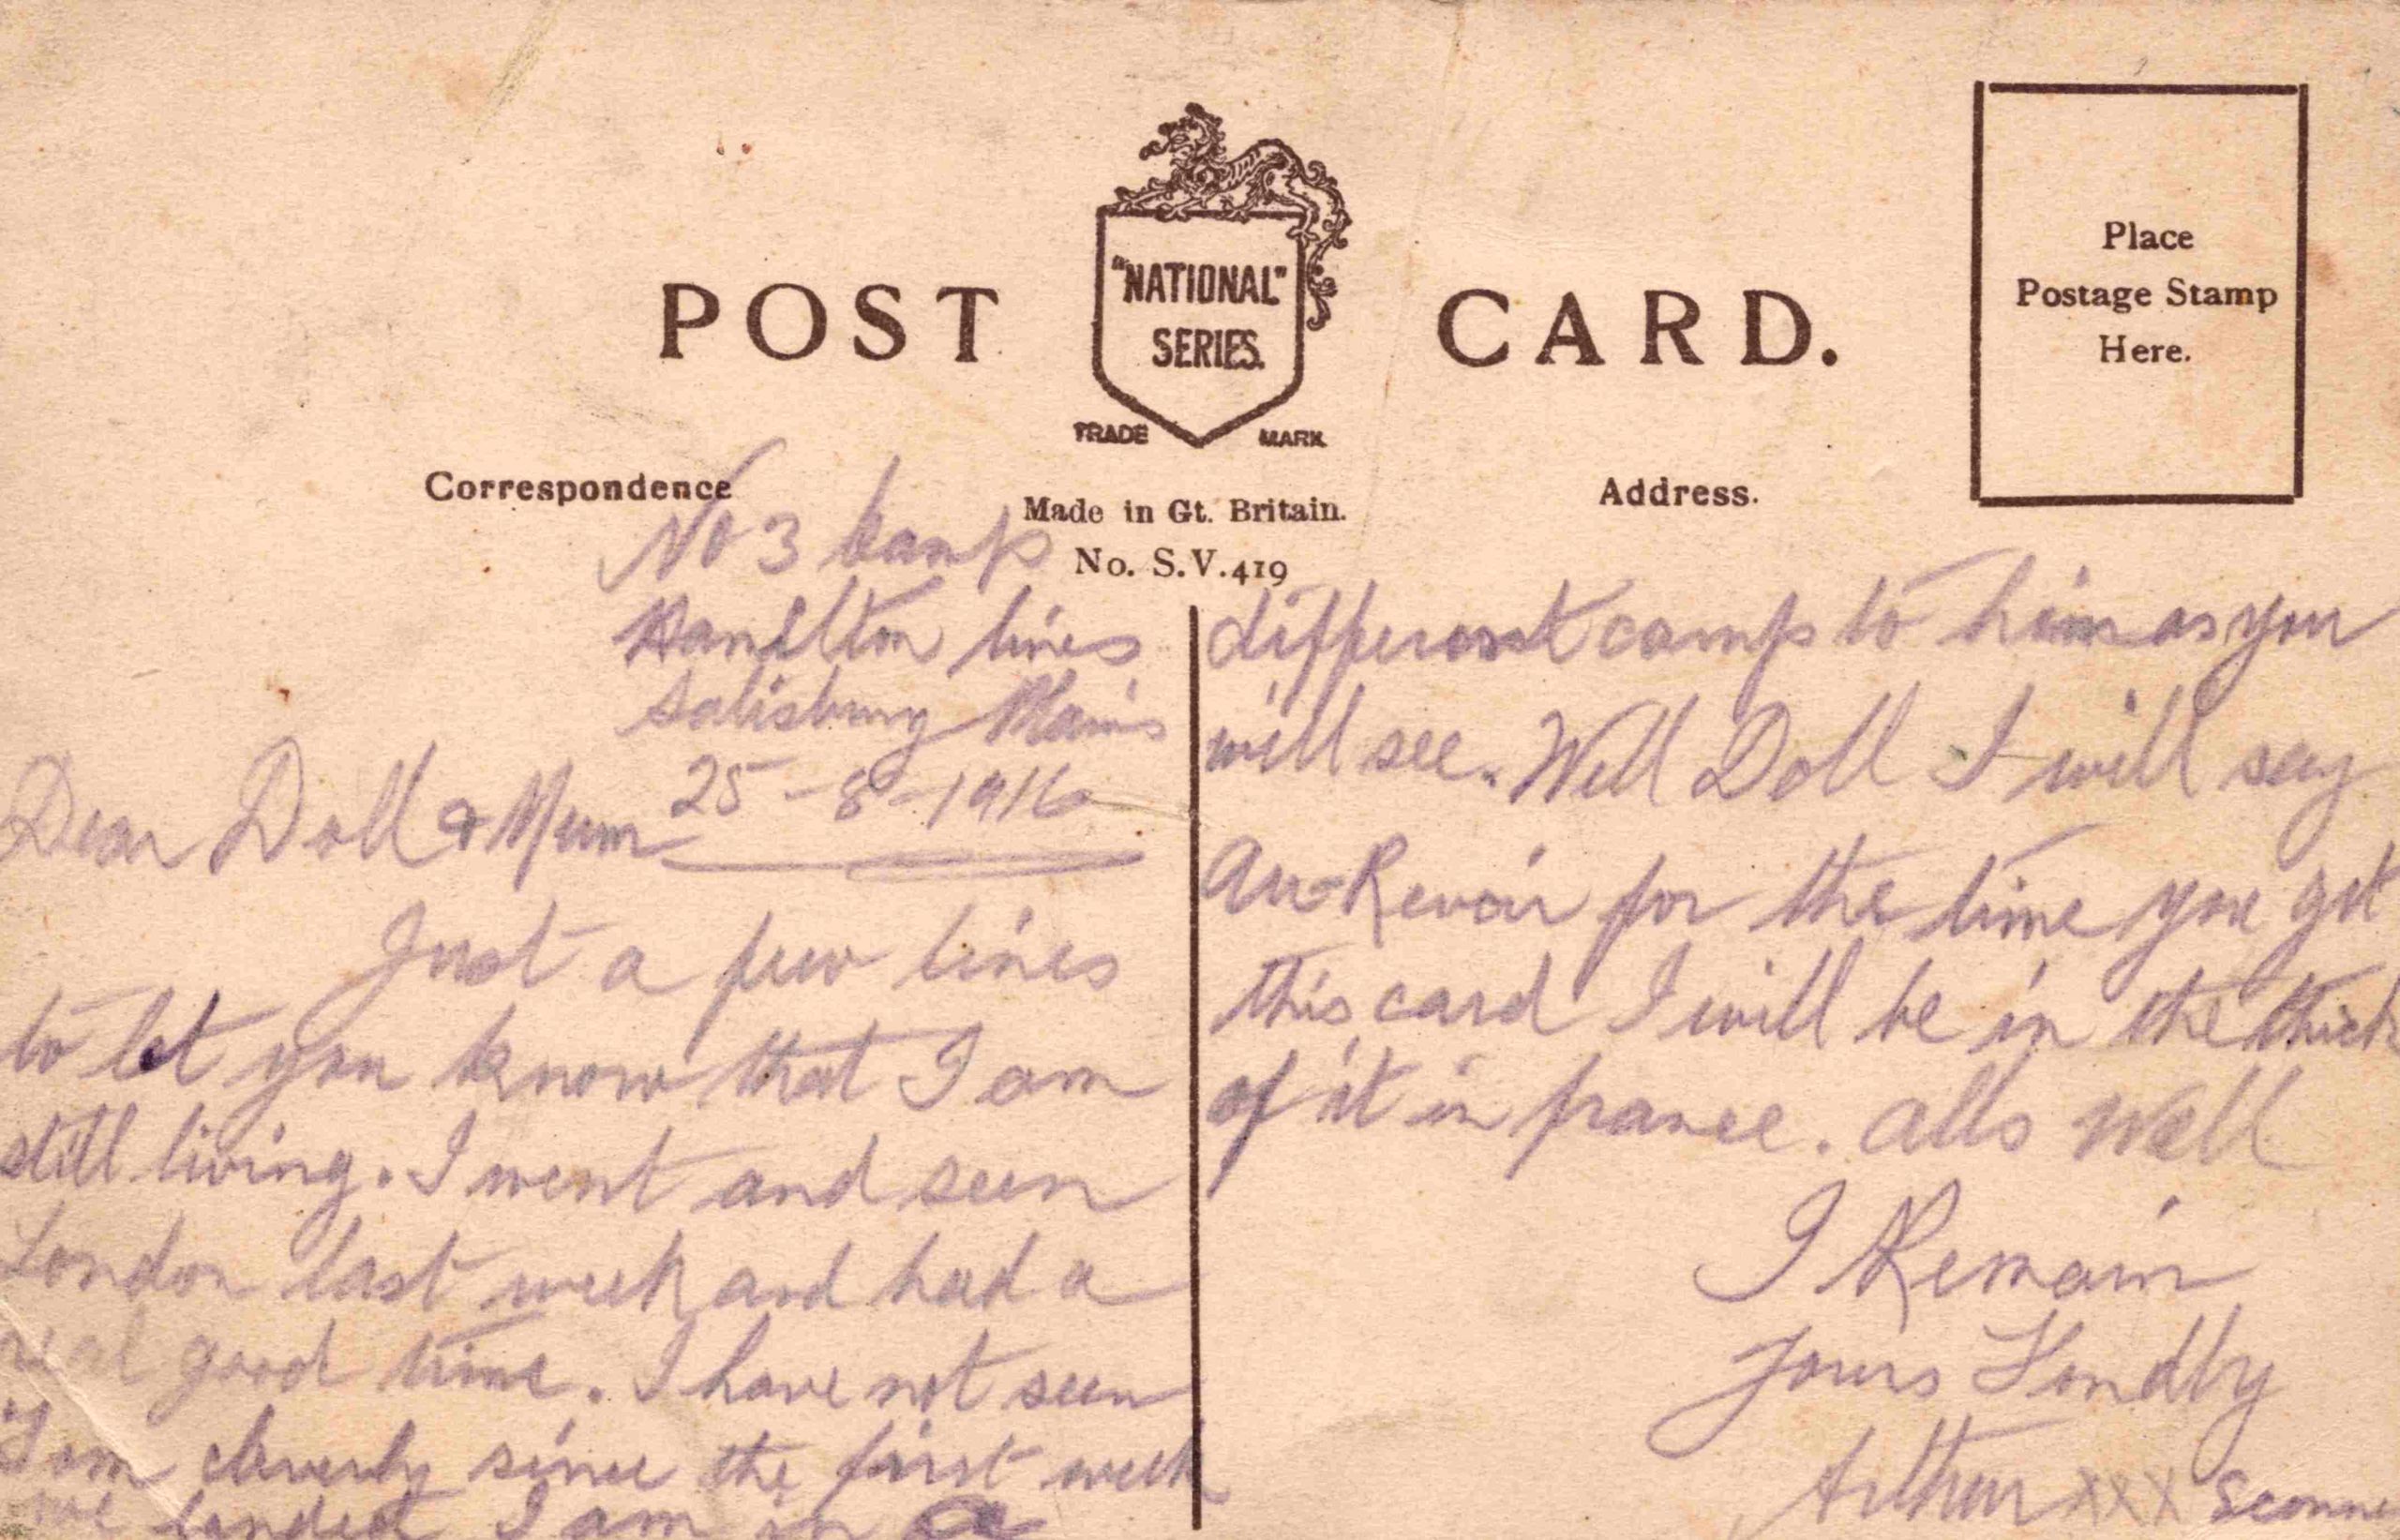 POST CARD.
"NATIONAL"
SERIES.
TRADE MARK
Place
Postage Stamp
Here.
Correspondence
Made in Gt. Britain.
No. S.V.419
Address.
No 3 Camp
Hamilton lines
Salisbury Plains
25-8-1916
Dear Doll & Mum
Just a few lines
to let you know that I am
still living. I went and seen
London last week and had a
real good time. I have not seen
Tom cleverly since the first week
we landed I am in a
different camp to him as you
will see. Well Doll I will say
Au-Revoir for the time you get
this card I will be in the thick
of it in france. alls Well
I Remain
Yours Fondly
Arthur XXX